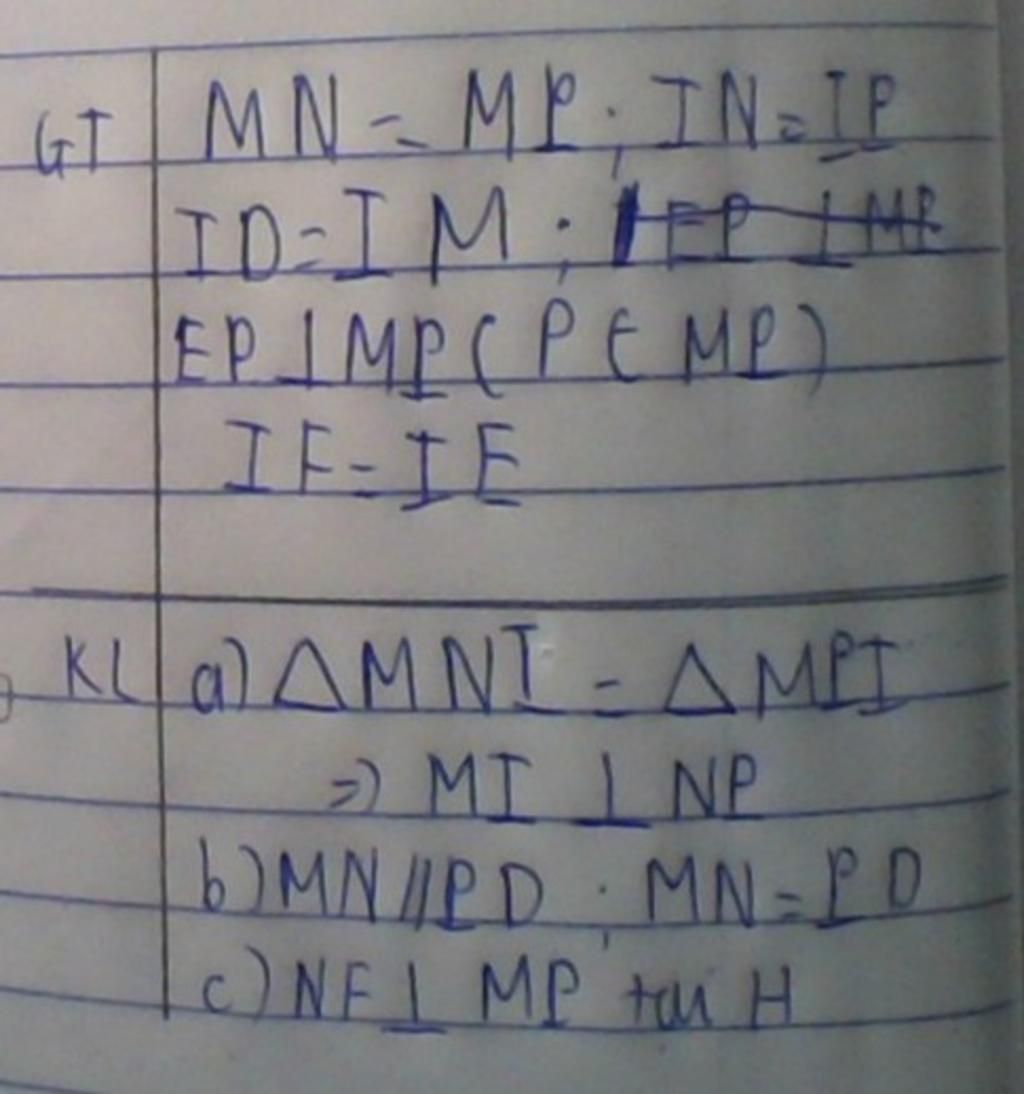 GT MN = MP ; IN = IP
ID = IM ; EP ⊥ MP
EP ⊥ MP ( P ∈ MP )
IF = IE
KL a) ΔMNI = ΔMPI
=> MI ⊥ NP
b) MN // PD ; MN = PD
c) NF ⊥ MP tại H